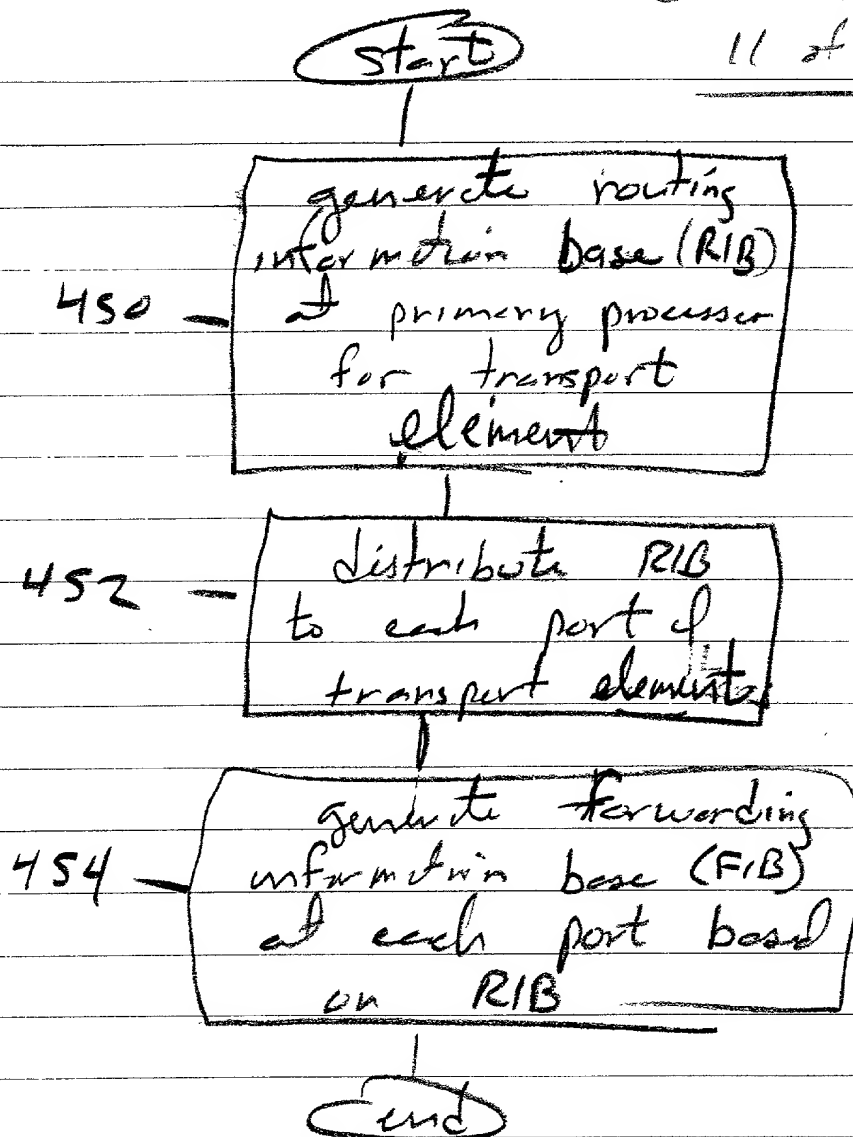 start
11 of
generate routing
information base (RIB)
450 — at primary processor
for transport
element
distribute RIB
452 — to each port of
transport element
generate forwarding
454 — information base (FIB)
at each port based
on RIB
end